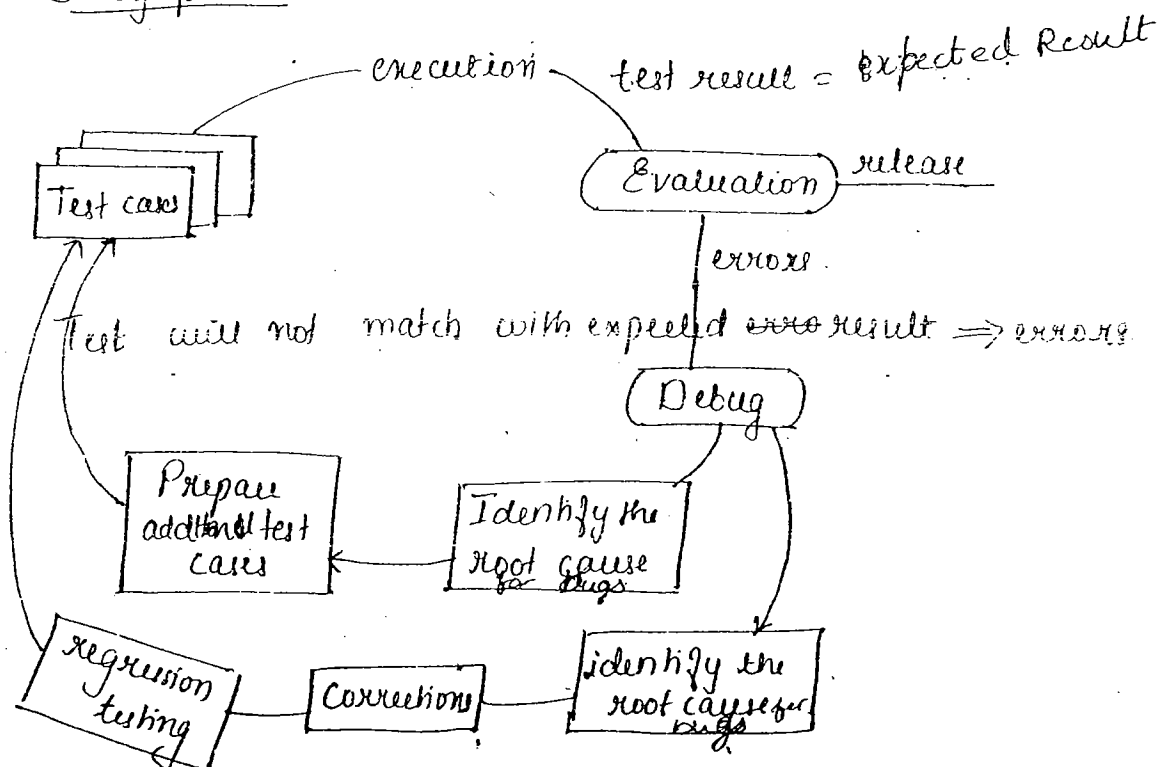 execution
test result = Expected Result
Test cases
Evaluation
release
errors.
Test will not match with expected erro result ⇒ errors
Debug
Prepare
test
cases
Identify the
root cause
for bugs
regression
testing
Corrections
identify the
root cause for
bugs